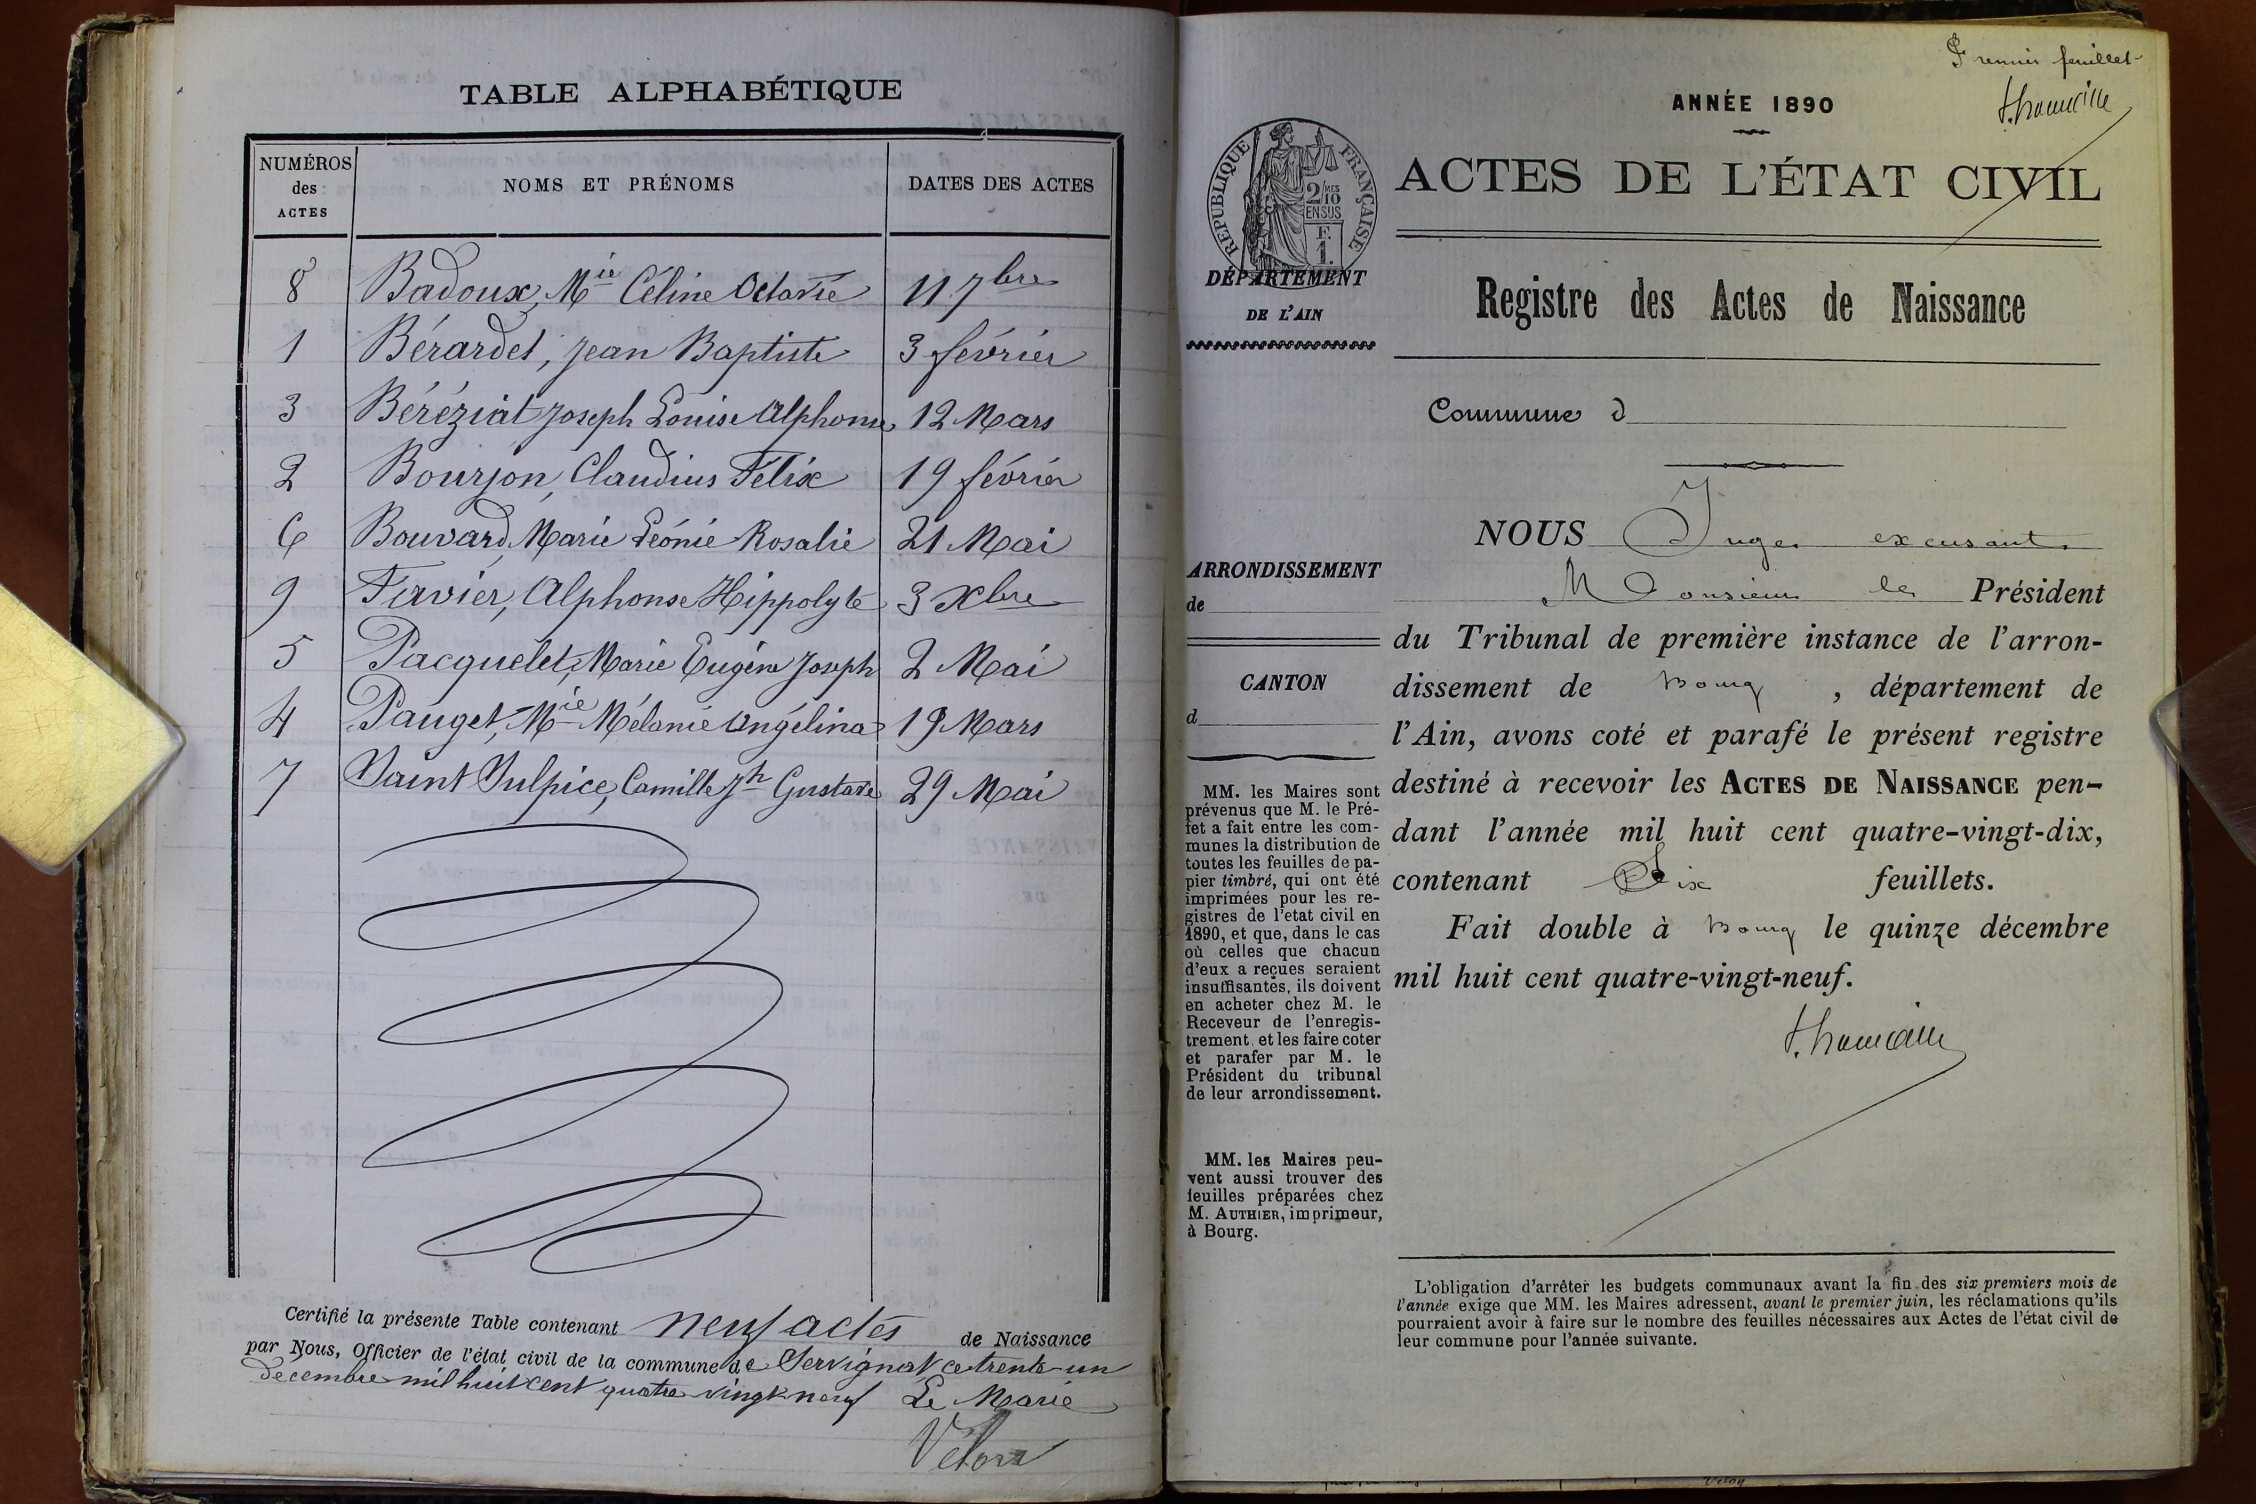 TABLE ALPHABÉTIQUE
NUMÉROS des ACTES NOMS ET PRÉNOMS DATES DES ACTES
8 Badoux, Mie Céline Octavie 11 7bre
1 Bérardet, Jean Baptiste 3 février
3 Béréziat Joseph Louis Alphonse 12 Mars
2 Bourjon, Claudius Félix 19 février
6 Bouvard, Marie Léonie Rosalie 21 Mai
9 Favier, Alphonse Hippolyte 3 Xbre
5 Pacquelet, Marie Eugène Joseph 2 Mai
4 Pauget, Mie Mélanie Angélina 19 Mars
7 Saint Sulpice, Camille Jh Gustave 29 Mai
Certifié la présente Table contenant neuf actes de Naissance
par Nous, Officier de l'état civil de la commune de Servignat ce trente-un
décembre mil huit cent quatre vingt neuf Le Marie
Premier feuillet
ANNÉE 1890
RÉPUBLIQUE FRANÇAISE
2/10 MES
EN SUS
F.
1.
ACTES DE L'ÉTAT CIVIL
DÉPARTEMENT
DE L'AIN
Registre des Actes de Naissance
Commune d
ARRONDISSEMENT
de
CANTON
d
MM. les Maires sont
prévenus que M. le Pré-
fet a fait entre les com-
munes la distribution de
toutes les feuilles de pa-
pier timbré, qui ont été
imprimées pour les re-
gistres de l'etat civil en
1890, et que, dans le cas
où celles que chacun
d'eux a reçues seraient
insuffisantes, ils doivent
en acheter chez M. le
Receveur de l'enregis-
trement, et les faire coter
et parafer par M. le
Président du tribunal
de leur arrondissement.
MM. les Maires peu-
vent aussi trouver des
feuilles préparées chez
M. AUTHIER, imprimeur,
à Bourg.
NOUS Juge excusant
Monsieur le Président
du Tribunal de première instance de l'arron-
dissement de Bourg, département de
l'Ain, avons coté et parafé le présent registre
destiné à recevoir les ACTES DE NAISSANCE pen-
dant l'année mil huit cent quatre-vingt-dix,
contenant Six feuillets.
Fait double à Bourg le quinze décembre
mil huit cent quatre-vingt-neuf.
L'obligation d'arrêter les budgets communaux avant la fin des six premiers mois de
l'année exige que MM. les Maires adressent, avant le premier juin, les réclamations qu'ils
pourraient avoir à faire sur le nombre des feuilles nécessaires aux Actes de l'état civil de
leur commune pour l'année suivante.